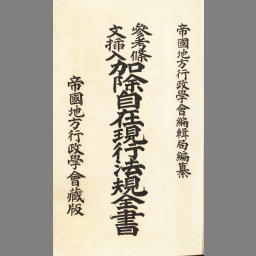 帝國地方行政學會編輯局編纂
參考條文挿入
加除自在現行法規全書
帝國地方行政學會藏版